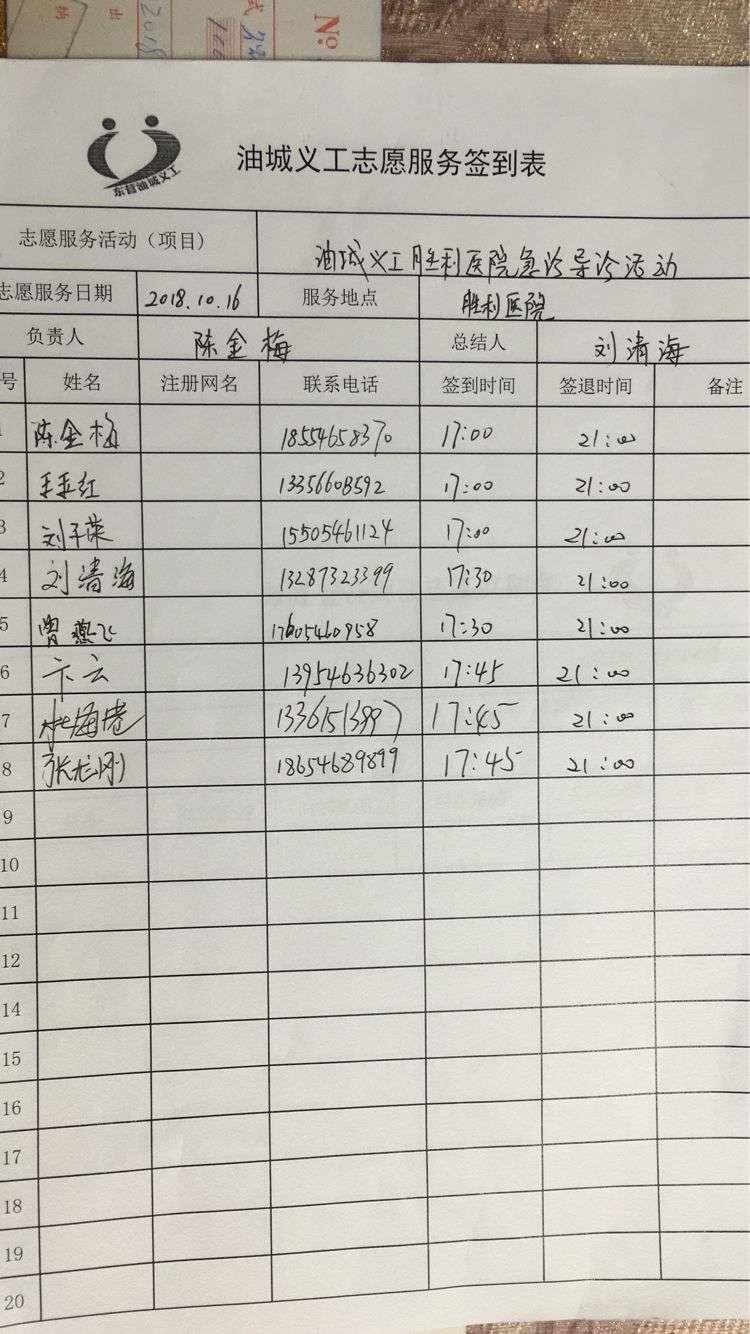 No
2018
东营油城义工
油城义工志愿服务签到表
志愿服务活动（项目） 油城义工胜利医院急诊导诊活动
志愿服务日期 2018.10.16 服务地点 胜利医院
负责人 陈金梅 总结人 刘清海
号 姓名 注册网名 联系电话 签到时间 签退时间 备注
1 陈金梅 18554658370 17:00 21:00
2 王亚红 13356608592 17:00 21:00
3 刘子荣 15505461124 17:00 21:00
4 刘清海 13287323399 17:30 21:00
5 曾燕飞 17605460958 17:30 21:00
6 卞云 13954636302 17:45 21:00
7 杜海港 17:45 21:00
8 张龙刚 18654689899 17:45 21:00
9
10
11
12
14
15
16
17
18
19
20